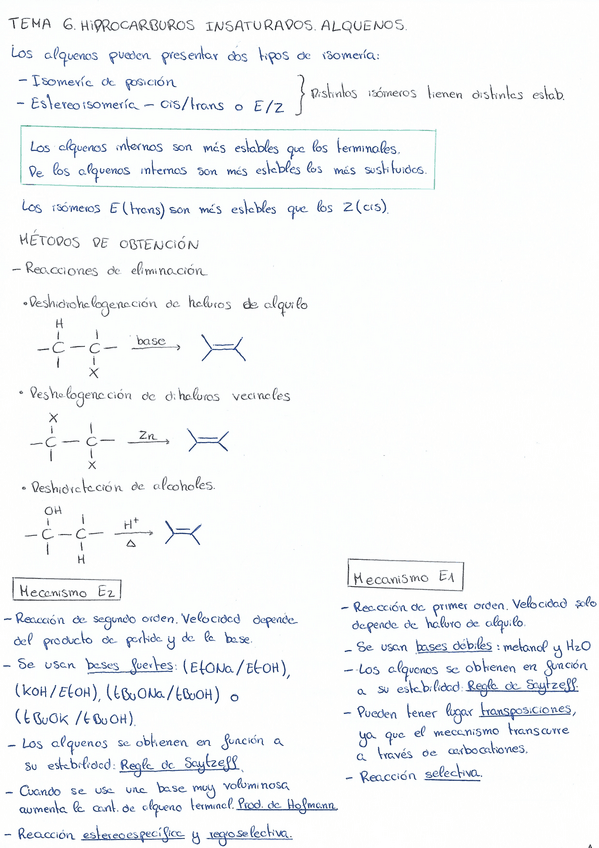 TEMA 6. HIDROCARBUROS INSATURADOS. ALQUENOS.
Los alquenos pueden presentar dos tipos de isomería:
– Isomería de posición
– Estereoisomería – cis/trans o E/Z
Distintos isómeros tienen distintas estab.
Los alquenos internos son más estables que los terminales.
De los alquenos internos son más estables los más sustituidos.
Los isómeros E (trans) son más estables que los Z (cis).
MÉTODOS DE OBTENCIÓN
– Reacciones de eliminación
• Deshidrohalogenación de haluros de alquilo
H
– C – C – base
X
• Deshalogenación de dihaluros vecinales
X
– C – C – Zn
X
• Deshidratación de alcoholes.
OH
– C – C – H+
Δ
H
Mecanismo E2
– Reacción de segundo orden. Velocidad depende
del producto de partida y de la base.
– Se usan bases fuertes: (EtONa/EtOH),
(KOH/EtOH), (tBuONa/tBuOH) o
(tBuOK/tBuOH).
– Los alquenos se obtienen en función a
su estabilidad: Regla de Saytzeff.
– Cuando se use una base muy voluminosa
aumenta la cant. de alqueno terminal. Prod. de Hofmann
– Reacción estereoespecífica y regioselectiva.
Mecanismo E1
– Reacción de primer orden. Velocidad solo
depende de haluro de alquilo.
– Se usan bases débiles: metanol y H2O
– Los alquenos se obtienen en función
a su estabilidad: Regla de Saytzeff
– Pueden tener lugar transposiciones,
ya que el mecanismo transcurre
a través de carbocationes.
– Reacción selectiva.